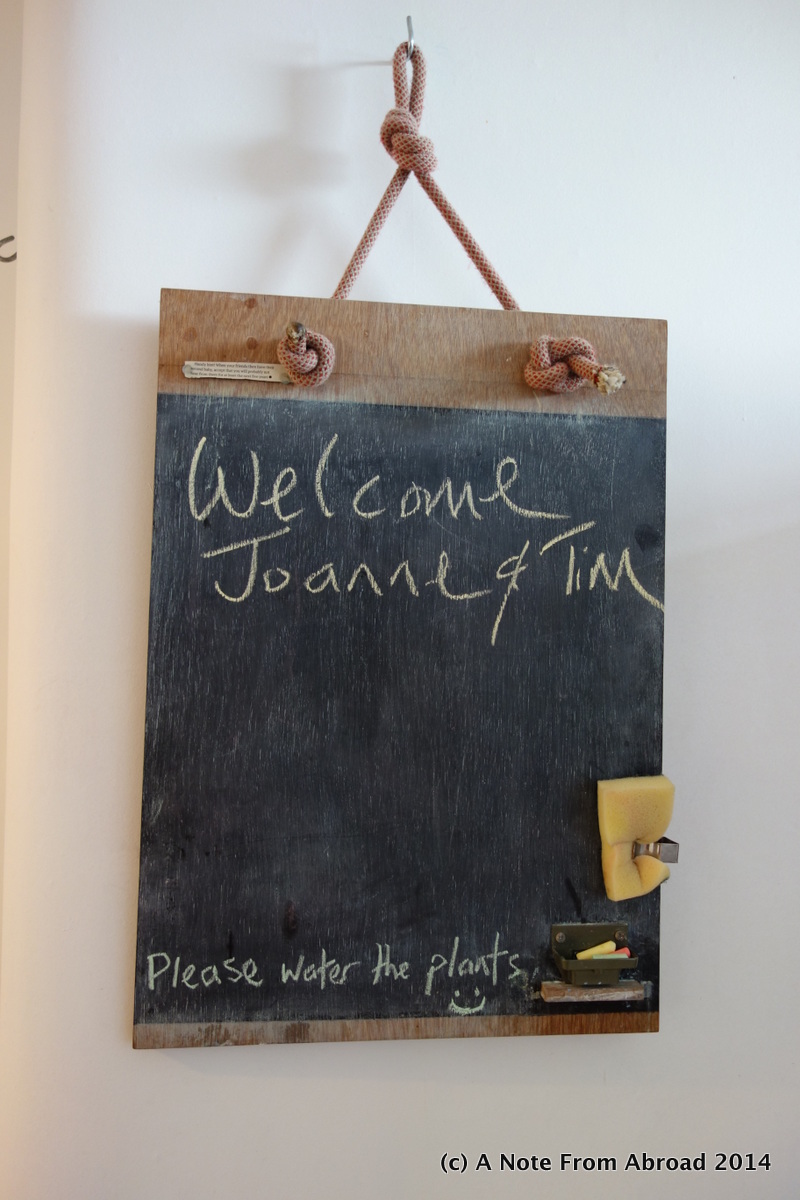 Welcome
Joanne & Tim
Please water the plants
(c) A Note From Abroad 2014